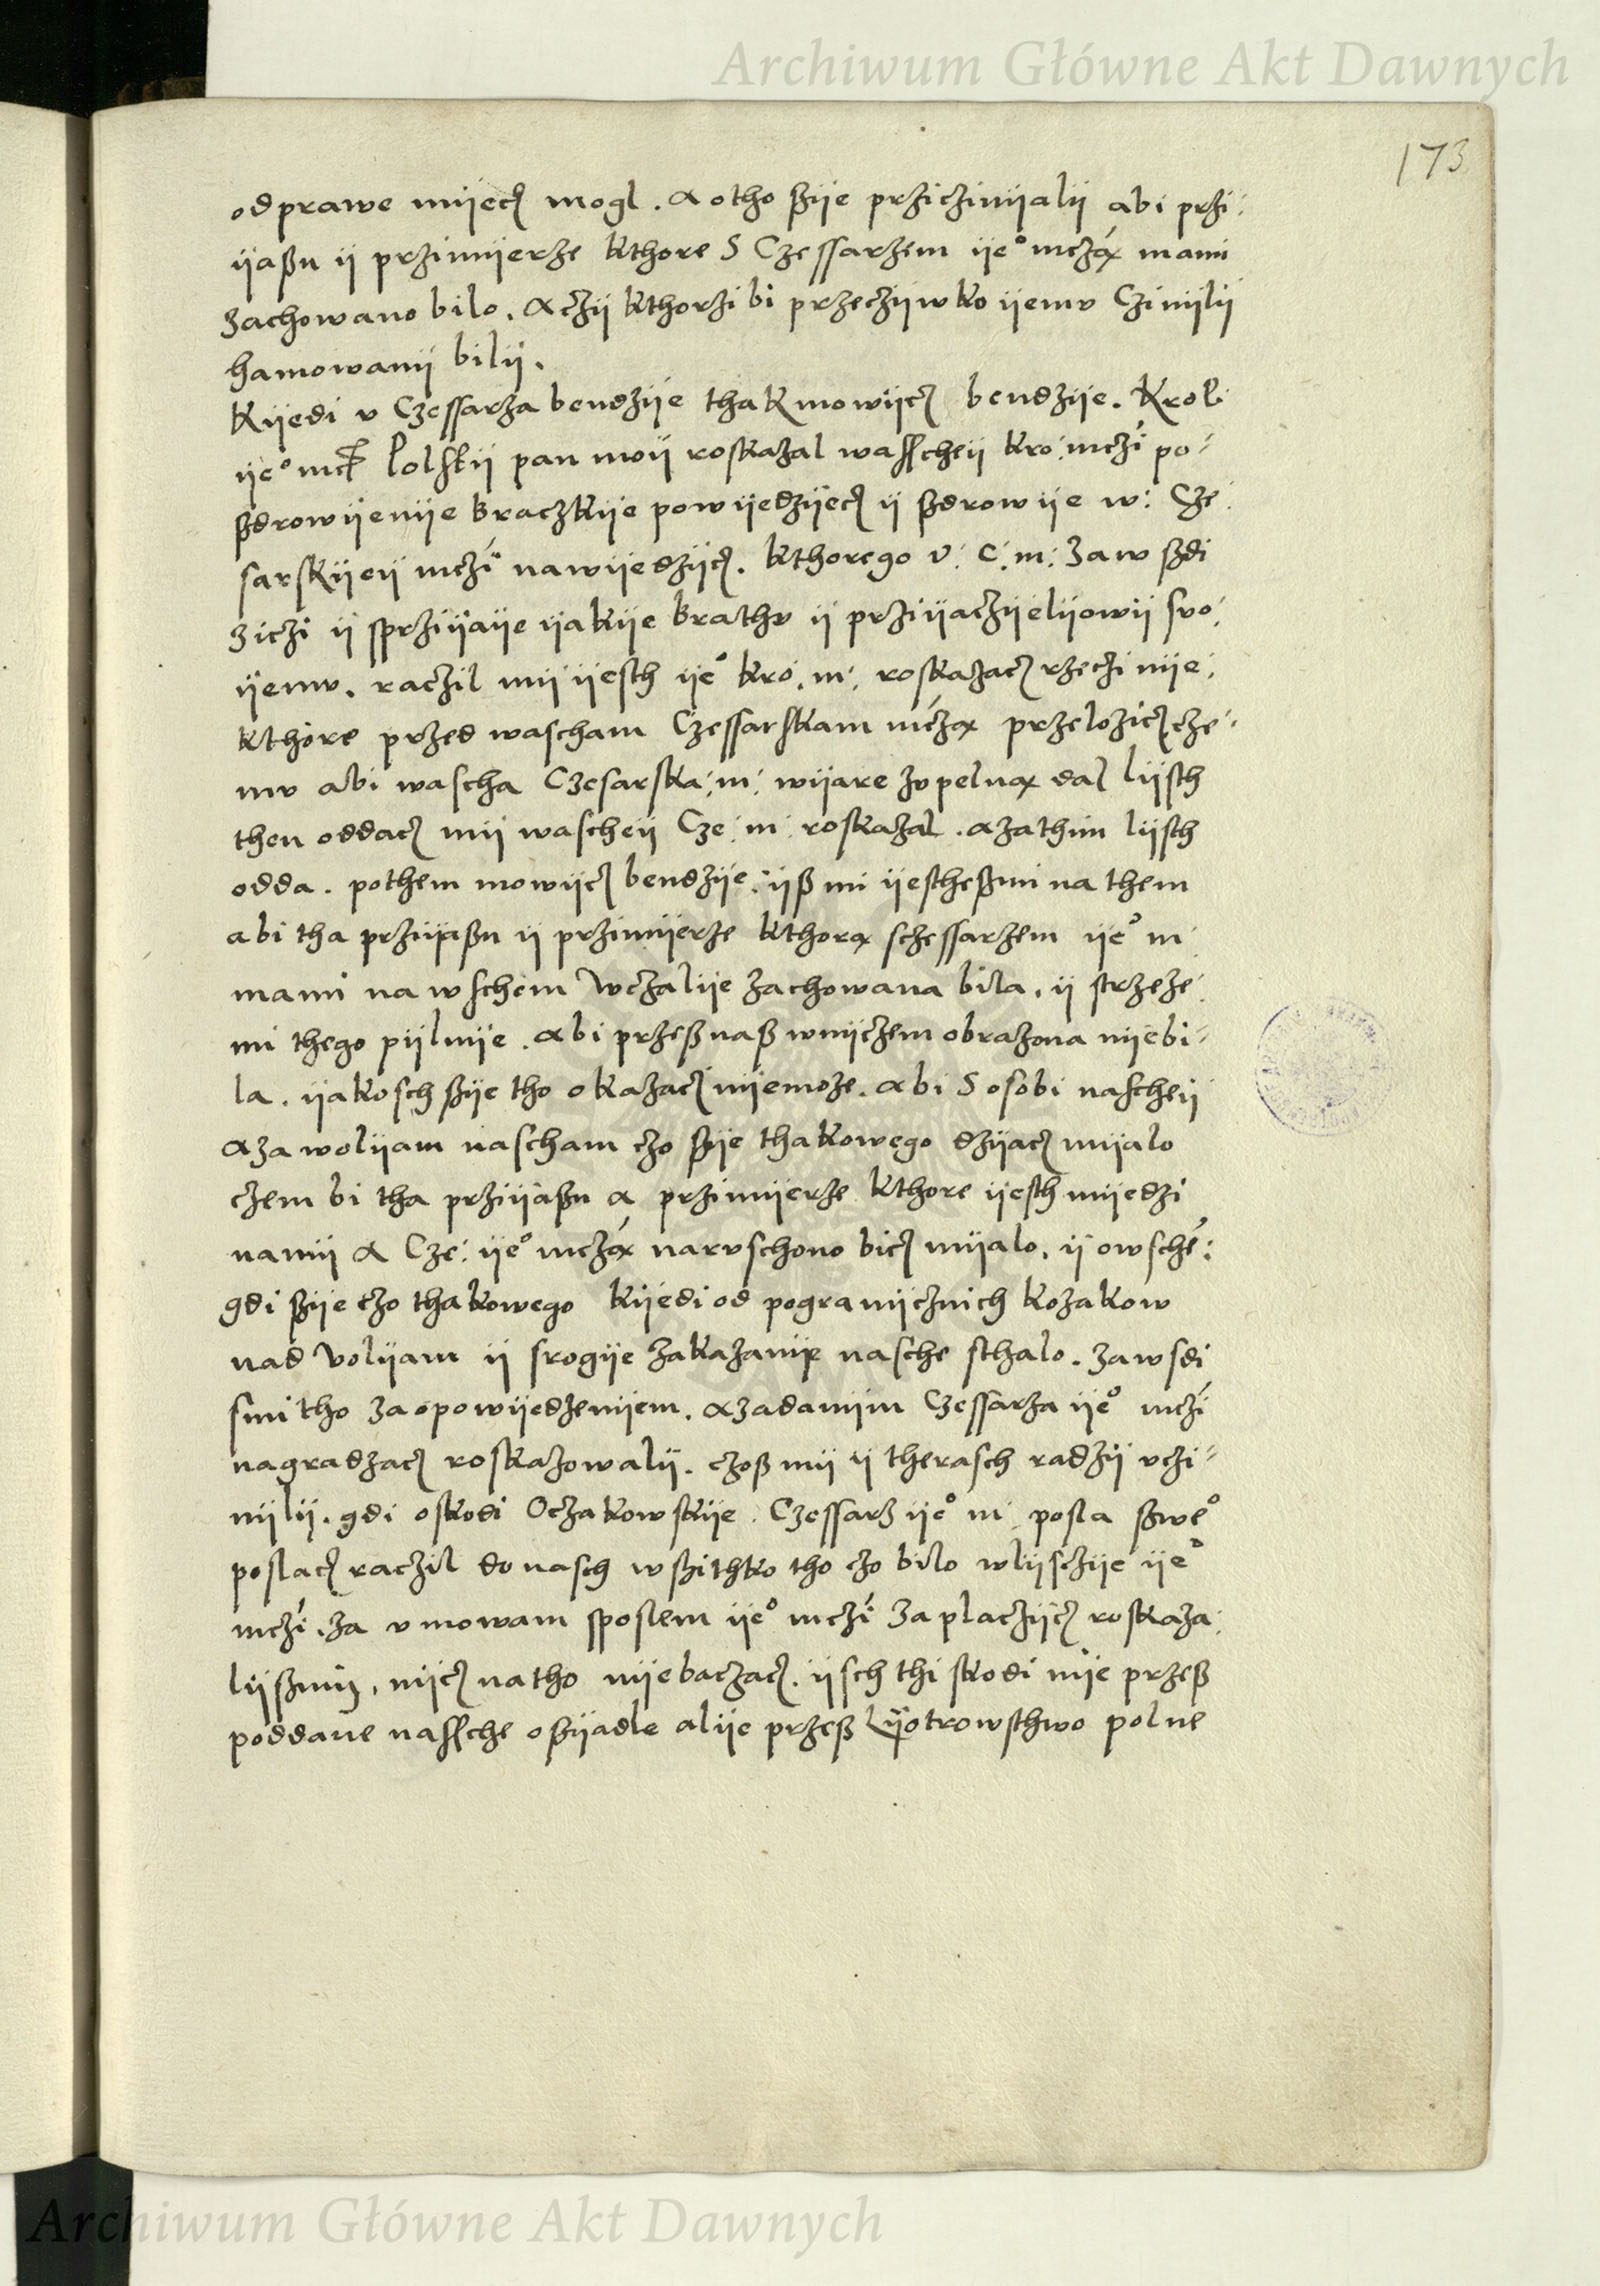 Archiwum Główne Akt Dawnych
173
odprawe mijecz mogl. A otho ßije przicziniјalij abi przi:
ijaßn ij przimijerze kthore S Czessarzem ije° mczą mami
zachowano bilo. A czij kthorzi bi przeczijwko ijemv Czinijlij
hamowanij bilij.
Kijedi v Czessarza bendzije thak mowijcz bendzije. Krol
ije° mcz Polskij pan moij roskazal wasscheij kro: mczi po-
ßdrowijenije braczkije powijedzijecz ij ßdrowije w: Cze:
sarskijeij mczi nawijedzijcz. kthorego v: c: m: zaw ßdi
ziczi ij sprzijaije ijakije brathv ij przijaczijelijowij svo:
ijemv. raczil mij ijesth ije° kro. m: roskazacz rzeczi nije:
kthore przed wascham Czessarskam mczą przelozicz cze-
mv abi wascha Czesarska: m: wijare zvpelną dal lijsth
then oddacz mij wascheij Cze: m: roskazal. A zathim lijsth
odda. pothem mowijcz bendzije. ijß mi ijesthesßmi na them
abi tha przijaßn ij przimijerze kthorą sczessarzem ije° m:
mami na wschem wczalije zachowana bila. ij strzeze:
mi thego pijlnije. Abi przeß naß wnijczem obrazona nijebi-
la. ijakosch ßije tho okazacz nijemoze. Abi S osobi nascheij
A za wolijam nascham czo ßije thakowego dzijacz mijalo
czem bi tha przijaßn A przimijerze kthore ijesth mijedzi
namij A Cze: ije° mczą narvschono bicz mijalo. ij owsche:
gdi ßije czo thakowego kijedi od pogranijcznich kozakow
nad volijam ij srogije zakazanije nasche sthalo. zawsdi
smi tho za opowijedzenijem. A zadanijm Czessarza ije° mczi
nagradzacz roskazowalij. czoß mij ij therasch radzij vczi-
nijlij. gdi oskodi Oczakowskije Czessarz ije° m: posla ßwe°
poslacz raczil do nasch wßithko tho czo bilo wlijsczije ije°
mczi. za vmowam sposlem ije° mczi zaplaczijcz roskaza:
lijßmij, nijcz natho nijebaczacz. ijsch thi skodi nije przeß
poddane nassche oßijadle alije przeß lijotrowsthwo polne
Archiwum Główne Akt Dawnych